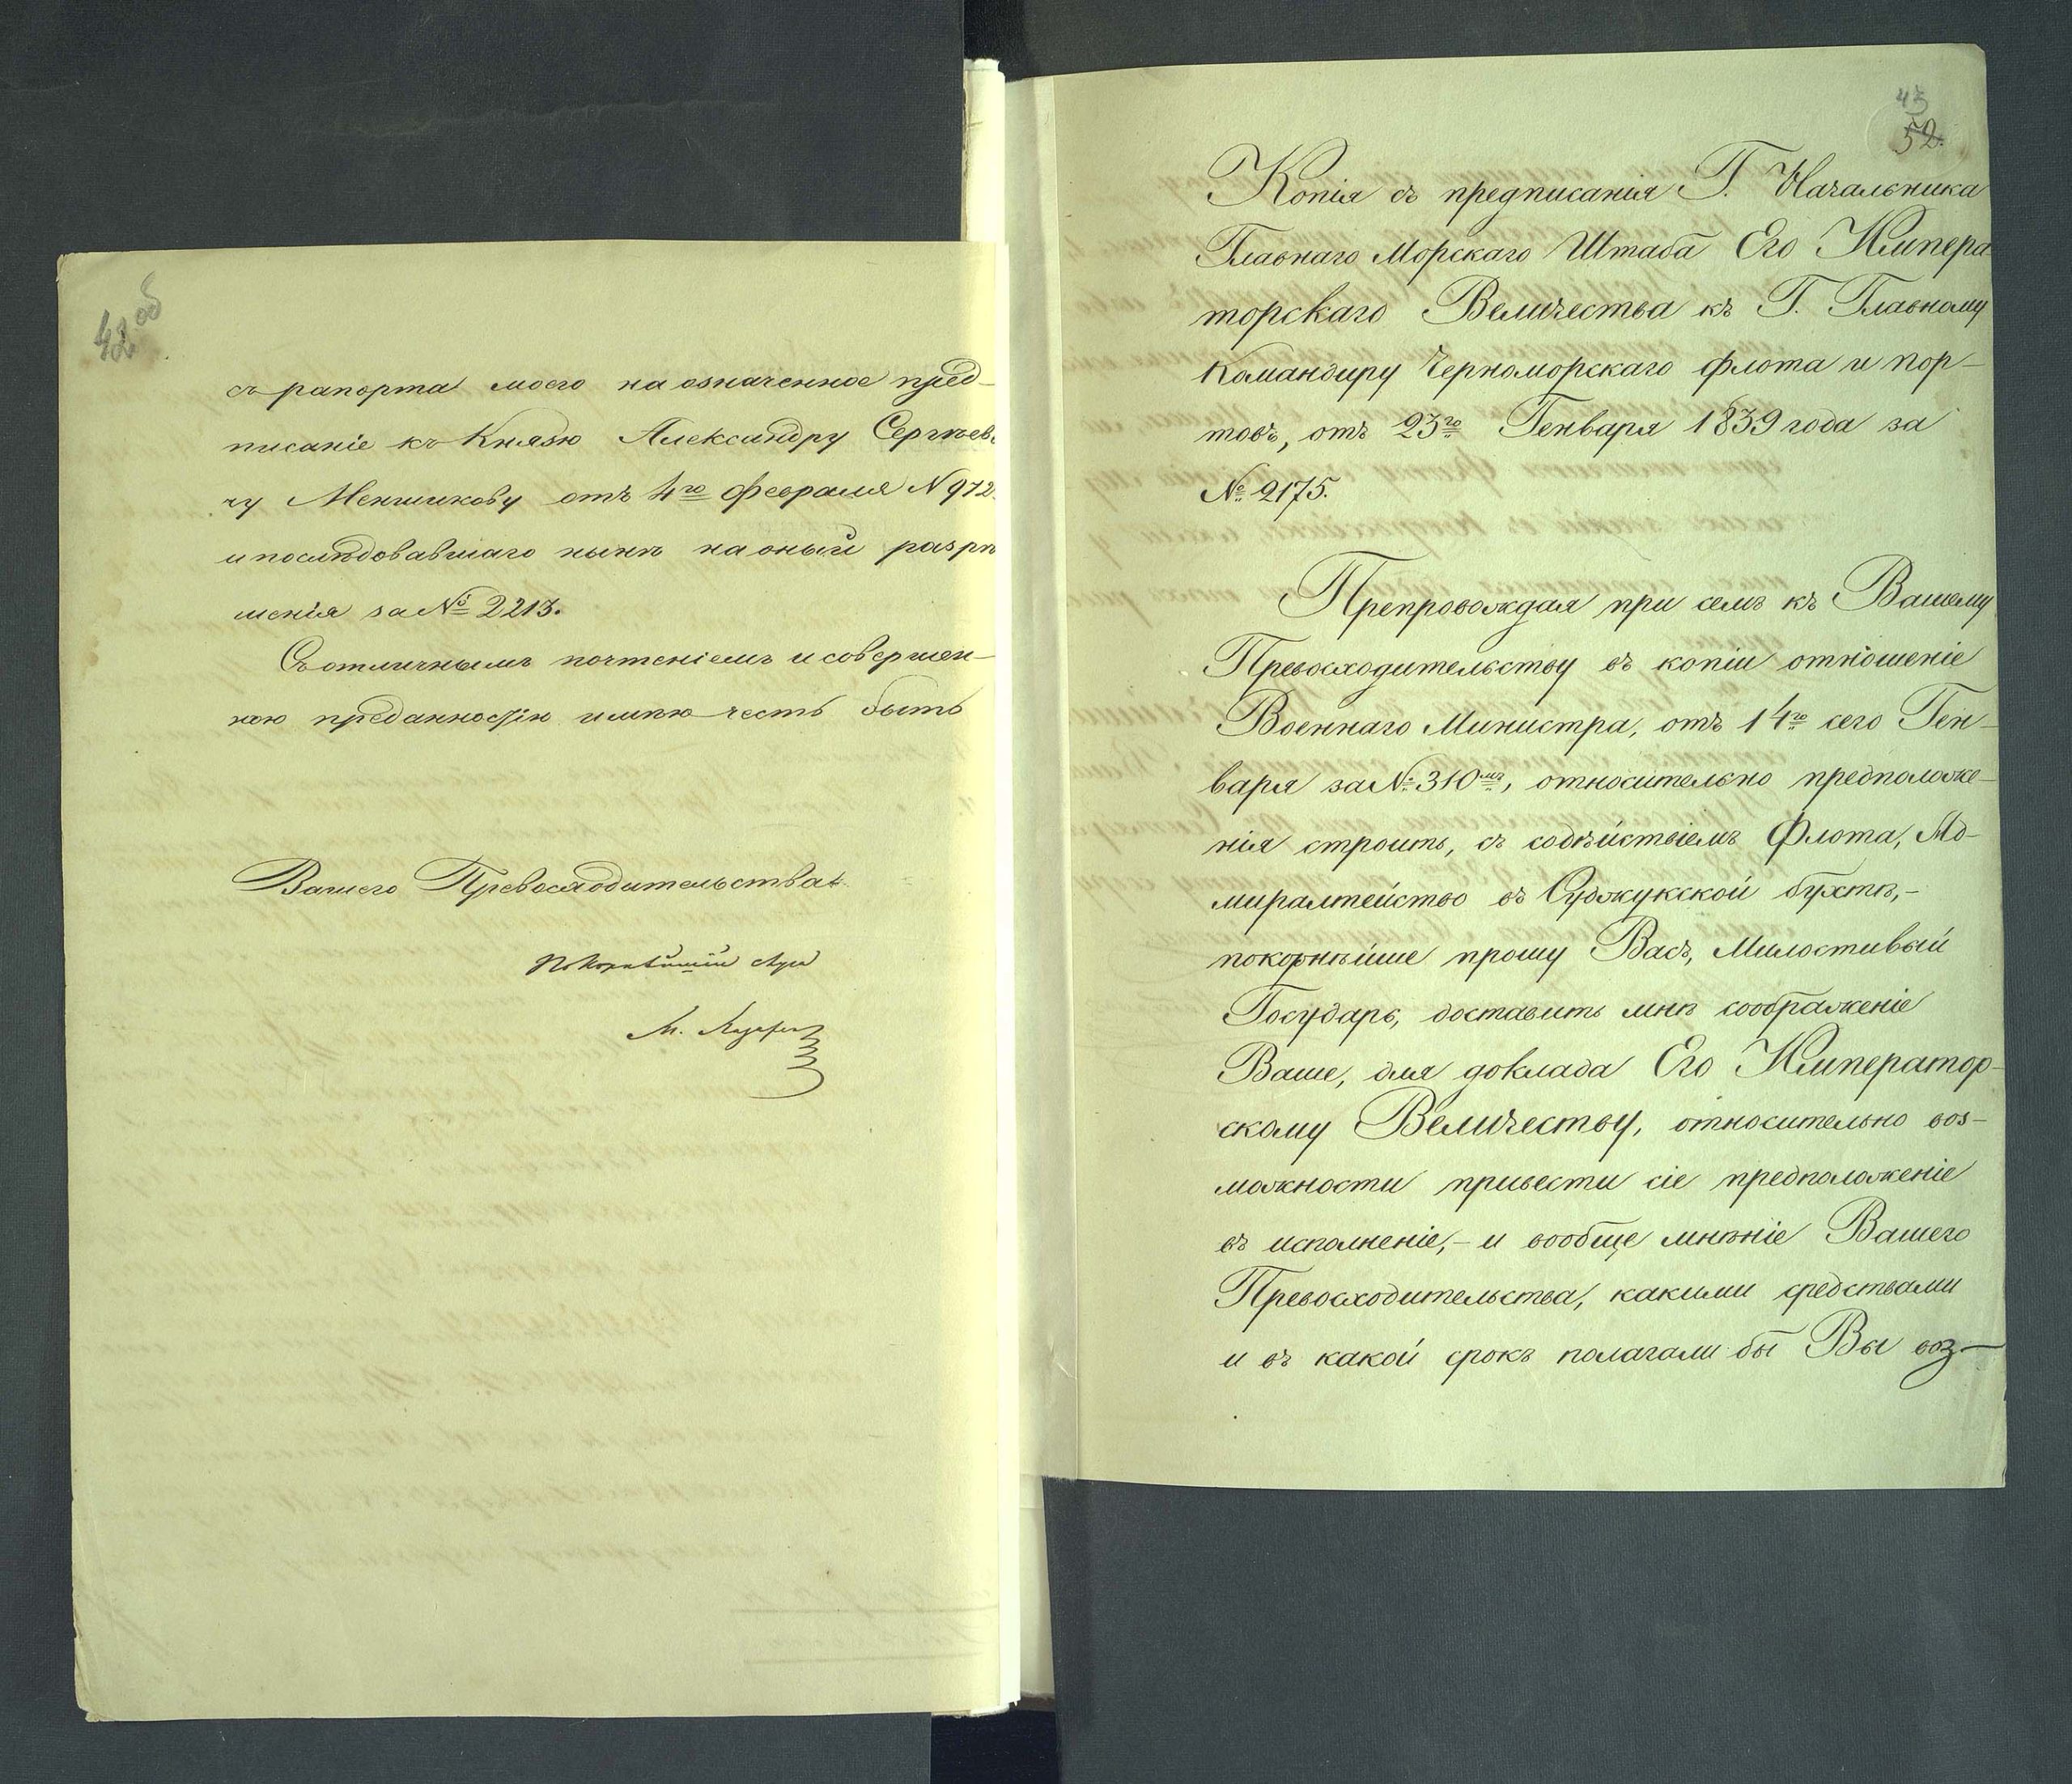 42 об
съ рапорта моего на означенное пред-
писаніе къ Князю Александру Сергѣеви
чу Меншикову отъ 4го февраля N 972.
и послѣдовавшаго нынѣ на оный разрѣ
шенія за № 2213.
Съ отличнымъ почтеніемъ и совершен-
ною преданностію имѣю честь быть
Вашего Превосходительства
покорнѣйшій слуга
М. Лазаревъ
43
52.
Копія съ предписанія Г. Начальника
Главнаго Морскаго Штаба Его Импера-
торскаго Величества къ Г. Главному
Командиру Черноморскаго флота и пор-
товъ, отъ 23го Генваря 1839 года за
№ 2175.
Препровождая при семъ къ Вашему
Превосходительству въ копіи отношеніе
Военнаго Министра, отъ 14го сего Ген-
варя за № 310мъ, относительно предположе-
нія строить, съ содѣйствіемъ Флота, Ад-
миралтейство въ Суджукской бухтѣ,-
покорнѣйше прошу Васъ, Милостивый
Государь, доставить мнѣ соображеніе
Ваше, для доклада Его Император-
скому Величеству, относительно воз-
можности привести сіе предположеніе
въ исполненіе,- и вообще мнѣніе Вашего
Превосходительства, какими средствами
и въ какой срокъ полагали бы Вы воз-